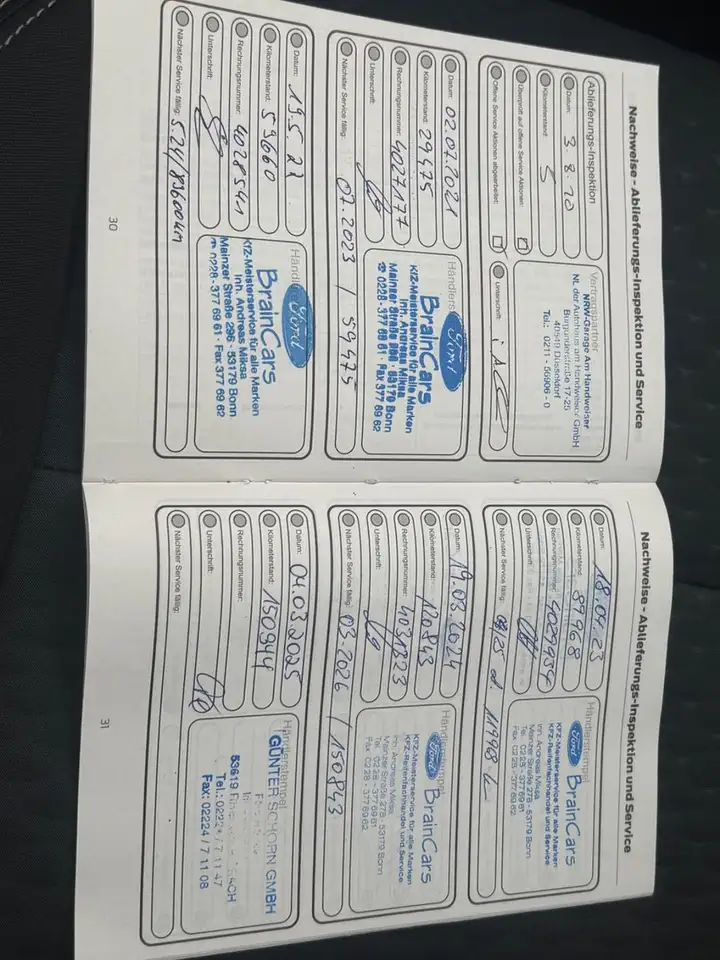 Nachweise - Ablieferungs-Inspektion und Service
Ablieferungs-Inspektion
Datum: 3.8.20
Kilometerstand: 5
Überprüft auf offene Service Aktionen:
Offene Service Aktionen abgearbeitet:
Vertragspartner
NRW-Garage Am Handweiser
NL der Autohaus am Handweiser GmbH
Burgunderstraße 17-25
40549 Düsseldorf
Tel.: 0211 - 56906 - 0
Unterschrift:
Datum: 02.07.2021
Kilometerstand: 29475
Rechnungsnummer: 4027177
Unterschrift:
Nächster Service fällig: 07.2023 / 59475
Händlers
Ford
BrainCars
KfZ-Meisterservice für alle Marken
Inh. Andreas Miksa
Mainzer Straße 296 · 53179 Bonn
☎ 0228 - 377 69 61 · Fax 377 69 62
Datum: 19.5.22
Kilometerstand: 53660
Rechnungsnummer: 4028541
Unterschrift:
Nächster Service fällig: 5.24/83600km
Händl
Ford
BrainCars
KfZ-Meisterservice für alle Marken
Inh. Andreas Miksa
Mainzer Straße 296 · 53179 Bonn
☎ 0228 - 377 69 61 · Fax 377 69 62
30
Nachweise - Ablieferungs-Inspektion und Service
Datum: 18.04.23
Kilometerstand: 89968
Rechnungsnummer:
Unterschrift:
Nächster Service fällig: 119968
Händlerstempel
Ford BrainCars
KFZ-Meisterservice für alle Marken
KFZ-Reifenfachhandel und Service
Inh. Andreas Miksa
Mainzer Straße 278 - 53179 Bonn
Tel. 02 28 - 377 69 61
Fax 02 28 - 377 69 62
Datum: 19.03.2024
Kilometerstand: 120843
Rechnungsnummer: 4031323
Unterschrift:
Nächster Service fällig: 03.2026 / 150843
Händlerstempel
Ford BrainCars
KFZ-Meisterservice für alle Marken
KFZ-Reifenfachhandel und Service
Inh. Andreas Miksa
Mainzer Straße 278 - 53179 Bonn
Tel. 02 28 - 377 69 61
Fax 02 28 - 377 69 62
Datum: 04.03.2025
Kilometerstand: 150944
Rechnungsnummer:
Unterschrift:
Nächster Service fällig:
Händlerstempel
GÜNTER SCHORN GMBH
53619
Tel.: 02224 / 7 11 47
Fax: 02224 / 7 11 08
31